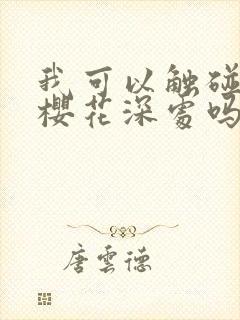 我可以触碰
樱花深处吗
唐云德